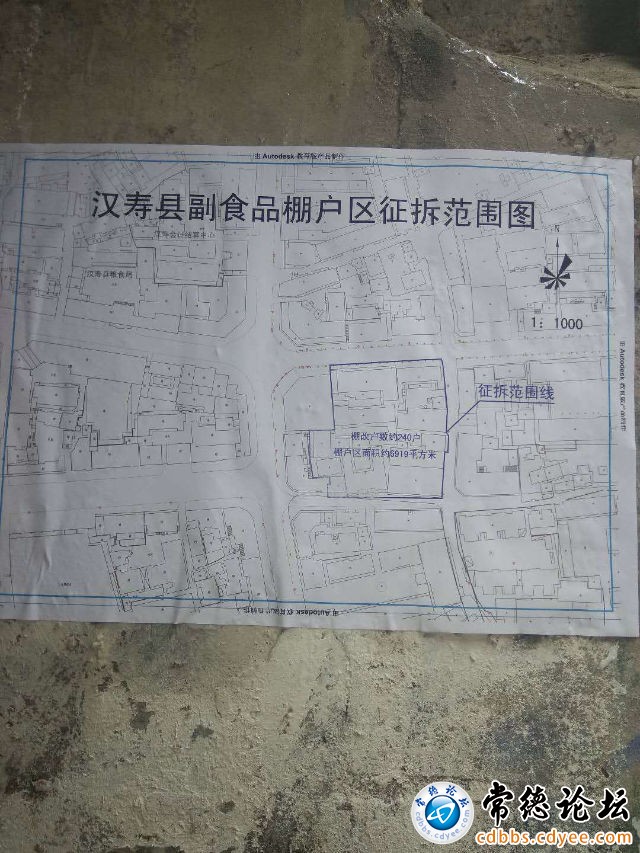 由 Autodesk 教育版产品制作
汉寿县副食品棚户区征拆范围图
汉寿会计结算中心
汉寿县粮食局
1：1000
由 Autodesk 教育版产品制作
征拆范围线
棚改户数约240户
棚户区面积约6919平方米
由 Autodesk 教育版产品制作
常德论坛
cdbbs.cdyee.com